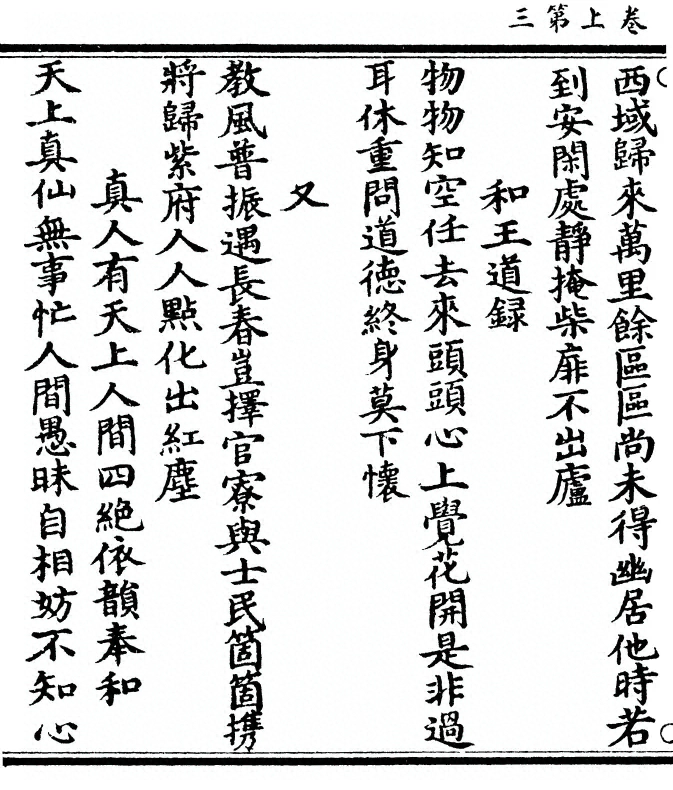 卷上第三
西域歸來萬里餘區區尚未得幽居他時若
到安閑處靜掩柴扉不出廬
和王道録
物物知空任去來頭頭心上覺花開是非過
耳休重問道德終身莫下懷
又
教風普振遇長春豈擇官寮與士民箇箇携
將歸紫府人人點化出紅塵
真人有天上人間四絶依韻奉和
天上真仙無事忙人間愚昧自相妨不知心